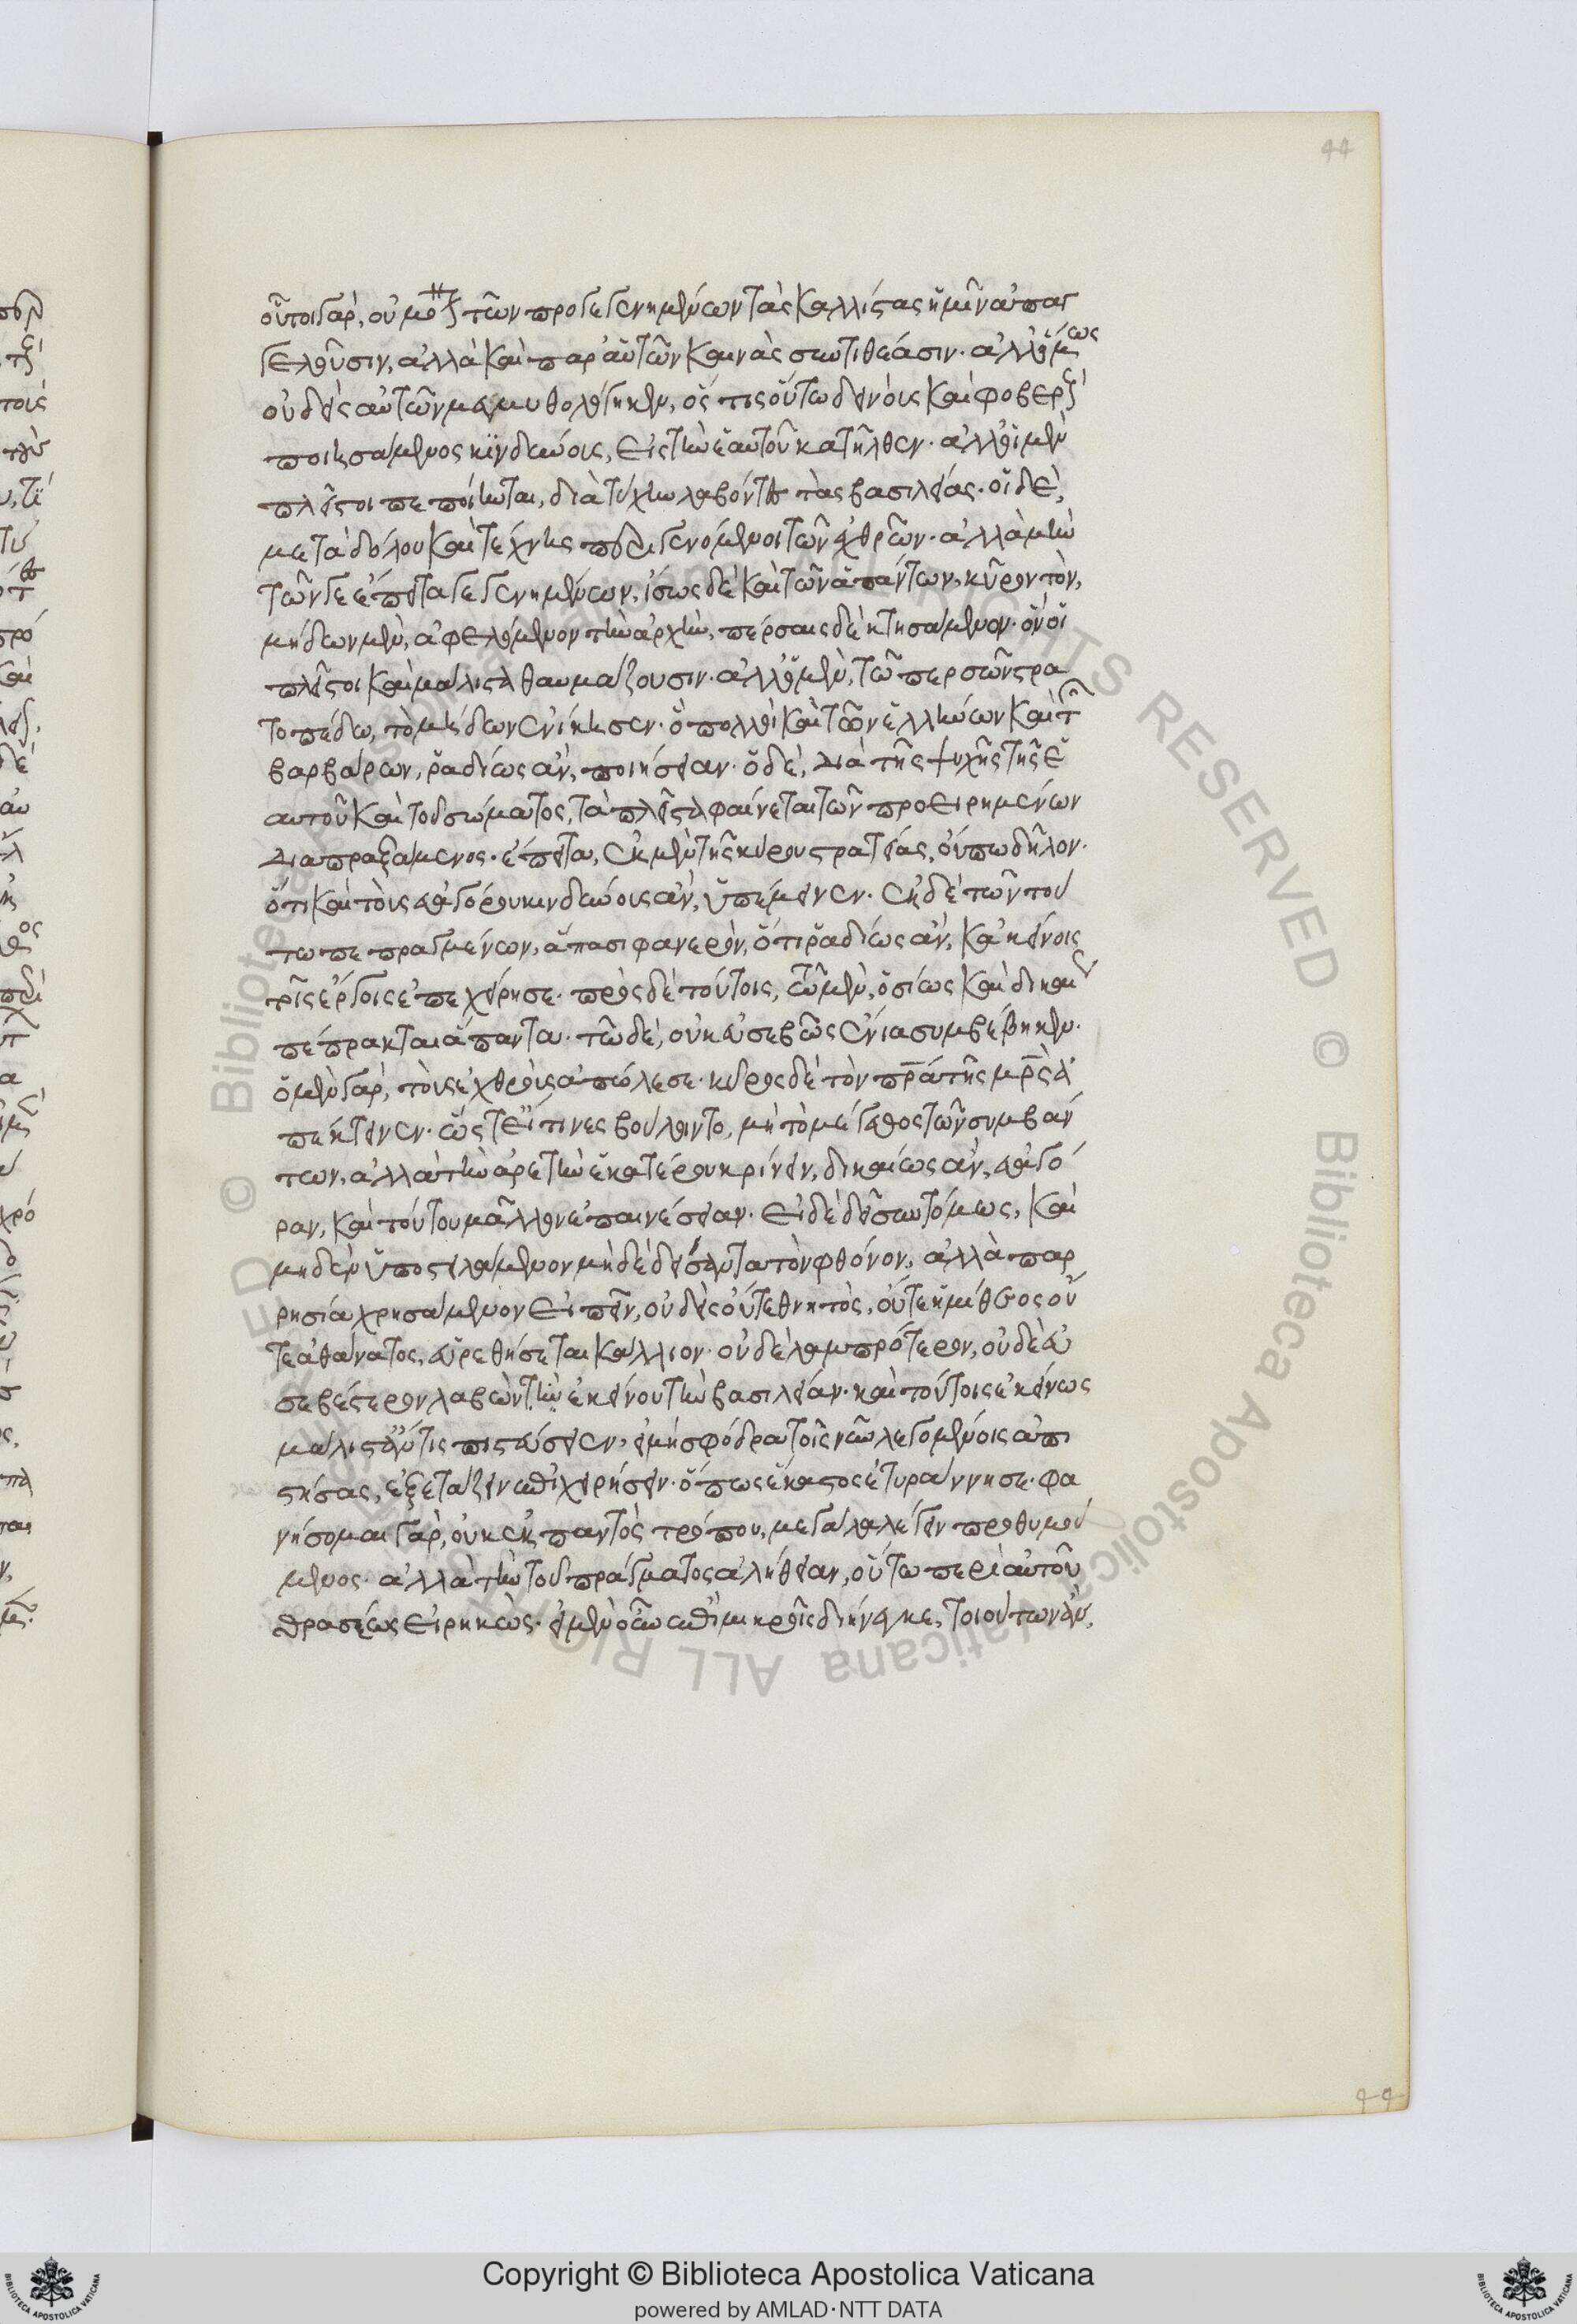 44
οὗτοι γὰρ, οὐ μόνον τῶν προγεγενημένων τὰς καλλίστας ἡμῖν ἀπαγ
γέλλουσιν, ἀλλὰ καὶ παρ' αὑτῶν καινὰς συντιθέασιν. ἀλλ' ὅμως
οὐδεὶς αὐτῶν μεμυθολόγηκεν, ὅς τις οὕτω δεινοῖς καὶ φοβεροῖς
ποιησάμενος κινδύνοις, εἰς τὴν ἑαυτοῦ κατῆλθεν. ἀλλ' οἱ μὲν
πλεῖστοι πεποίηνται, διὰ τύχην λαβόντες τὰς βασιλείας. οἱ δὲ,
μετὰ δόλου καὶ τέχνης περιγενόμενοι τῶν ἐχθρῶν. ἀλλὰ μὴν
τῶν γε ἔπειτα γεγενημένων, ἴσως δὲ καὶ τῶν ἁπάντων, κῦρον τὸν,
μήδων μὲν, ἀφελόμενον τὴν ἀρχὴν, πέρσαις δὲ κτησάμενον. ὃν οἱ
πλεῖστοι καὶ μάλιστα θαυμάζουσιν. ἀλλ' ὁ μὲν, τῷ περσῶν στρα
τοπέδῳ, τὸ μήδων ἐνίκησεν. ὃ πολλοὶ καὶ τῶν ἑλλήνων καὶ τῶν
βαρβάρων, ῥαδίως ἂν, ποιήσειαν. ὁ δὲ, διὰ τῆς ψυχῆς τῆς ἑ
αυτοῦ καὶ τοῦ σώματος, τὰ πλεῖστα φαίνεται τῶν προειρημένων
διαπραξάμενος. ἔπειτα, ἐκ μὲν τῆς κύρου στρατείας, οὔπω δῆλον.
ὅτι καὶ τοὺς εὐαγόρου κινδύνους ἂν, ὑπέμεινεν. ἐκ δὲ τῶν τού
τω πεπραγμένων, ἅπασι φανερὸν, ὅτι ῥαδίως ἂν, κἀκείνοις
τοῖς ἔργοις ἐπεχείρησε. πρὸς δὲ τούτοις, τῷ μὲν, ὁσίως καὶ δικαίως
πέπρακται ἅπαντα. τῷ δὲ, οὐκ εὐσεβῶς ἔνια συμβέβηκεν.
ὁ μὲν γὰρ, τοὺς ἐχθροὺς ἀπώλεσε. κῦρος δὲ τὸν πρα τῆς μρς ἀ
πέκτεινεν. ὥστε εἴ τινες βούλοιντο, μὴ τὸ μέγεθος τῶν συμβάν
των, ἀλλὰ τὴν ἀρετὴν ἑκατέρου κρίνειν, δικαίως ἂν, εὐαγό
ραν, καὶ τούτου μᾶλλον ἐπαινέσειαν. εἰ δὲ δεῖ συντόμως, καὶ
μηδὲν ὑποστειλάμενον μὴ δὲ δείσαντα τὸν φθόνον, ἀλλὰ παρ
ρησίᾳ χρησάμενον εἰπεῖν, οὐδεὶς οὔτε θνητὸς, οὔτε ἡμίθεος οὔ
τε ἀθάνατος, εὑρεθήσεται κάλλιον. οὐδὲ λαμπρότερον, οὐδὲ εὐ
σεβέστερον λαβὼν τὴν ἐκείνου τὴν βασιλείαν. καὶ τούτοις ἐκείνως
μάλιστ' ἄν τις πιστεύσειεν, εἰ μὴ σφόδρα τοῖς νῦν λεγομένοις ἀπι
στήσας, ἐξετάζειν ἐπιχειρήσειεν. ὅπως ἕκαστος ἐτυράννησε. φα
νήσομαι γὰρ, οὐκ ἐκ παντὸς τρόπου, μεγάλα λέγειν προθυμού
μενος. ἀλλὰ τὴν τοῦ πράγματος ἀλήθειαν, οὕτω περὶ αὐτοῦ
θρασέως εἰρηκώς. εἰ μὲν οὖν ἐπὶ μικροῖς διήνεγκε, τοιούτων ἂν,
44
Copyright © Biblioteca Apostolica Vaticana
powered by AMLAD·NTT DATA